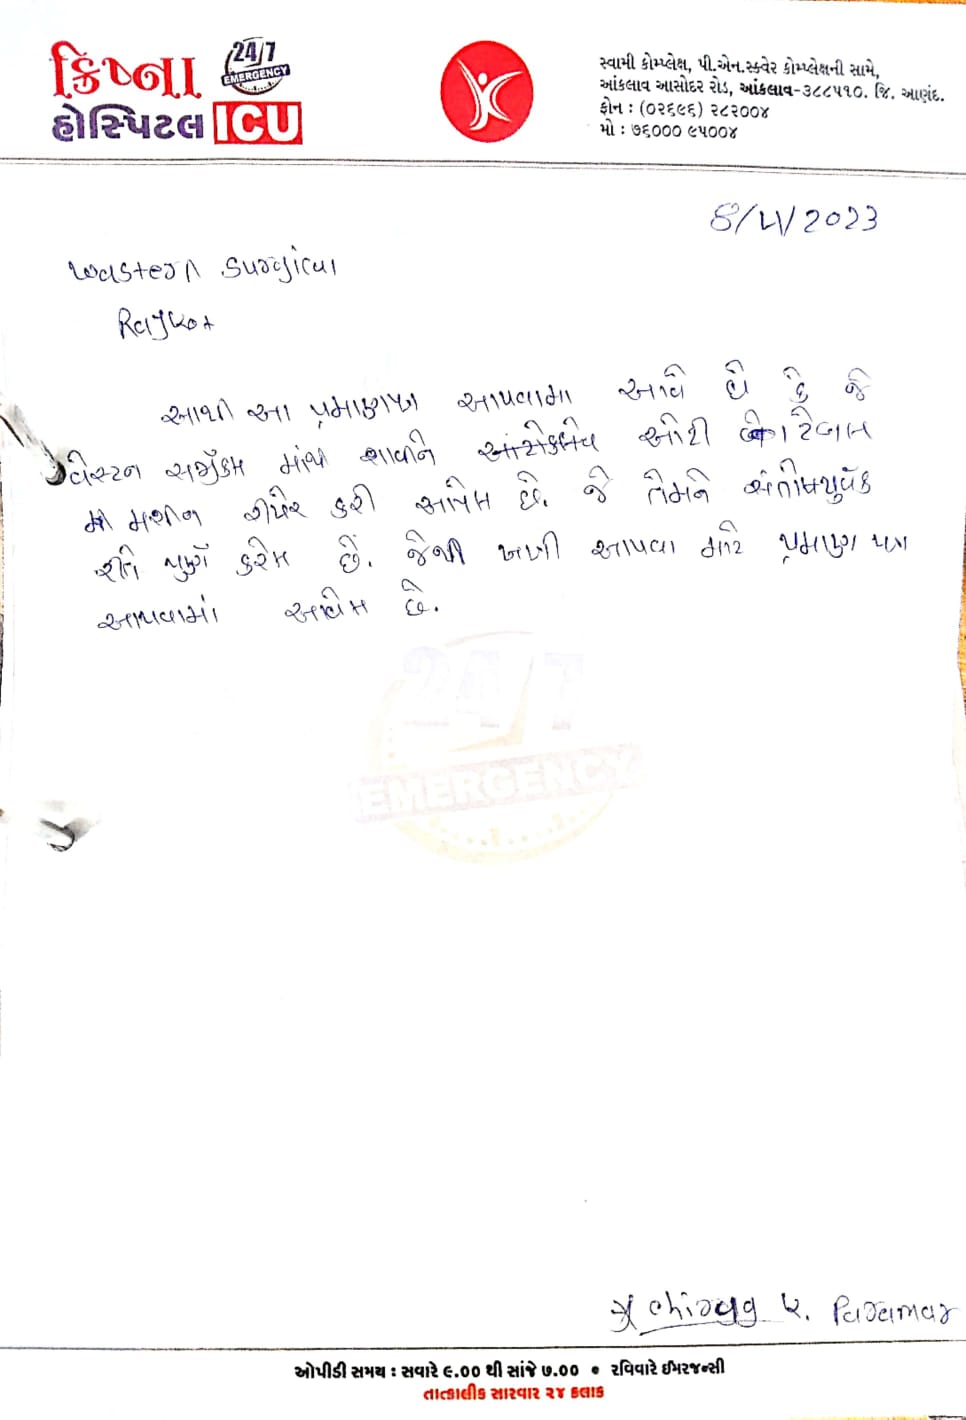 ક્રિષ્ના
હોસ્પિટલ ICU
24/7
EMERGENCY
સ્વામી કોમ્પ્લેક્ષ, પી.એન.સ્ક્વેર કોમ્પ્લેક્ષની સામે,
આંકલાવ આસોદર રોડ, આંકલાવ-૩૮૮૫૧૦. જિ. આણંદ.
ફોન : (૦૨૬૯૬) ૨૮૨૦૦૪
મો : ૭૬૦૦૦ ૯૫૦૦૪
2023
Western Surgical
Rajkot
આથી આ પ્રમાણપત્ર આપવામા આવે છે કે જે
વેસ્ટન સર્જીકલ માંથી આવીને ઓટી ટેબલ
મશીન રીપેર કરી આપેલ છે. જે તેમને સંતોષપુર્વક
રીતે પુર્ણ કરેલ છે. જેથી આપવા માટે પ્રમાણ પત્ર
આપવામાં આવેલ છે.
24/7
EMERGENCY
Chirag K. Paramar
ઓપીડી સમય : સવારે ૯.૦૦ થી સાંજે ૭.૦૦ • રવિવારે ઈમરજન્સી
તાત્કાલીક સારવાર ૨૪ કલાક